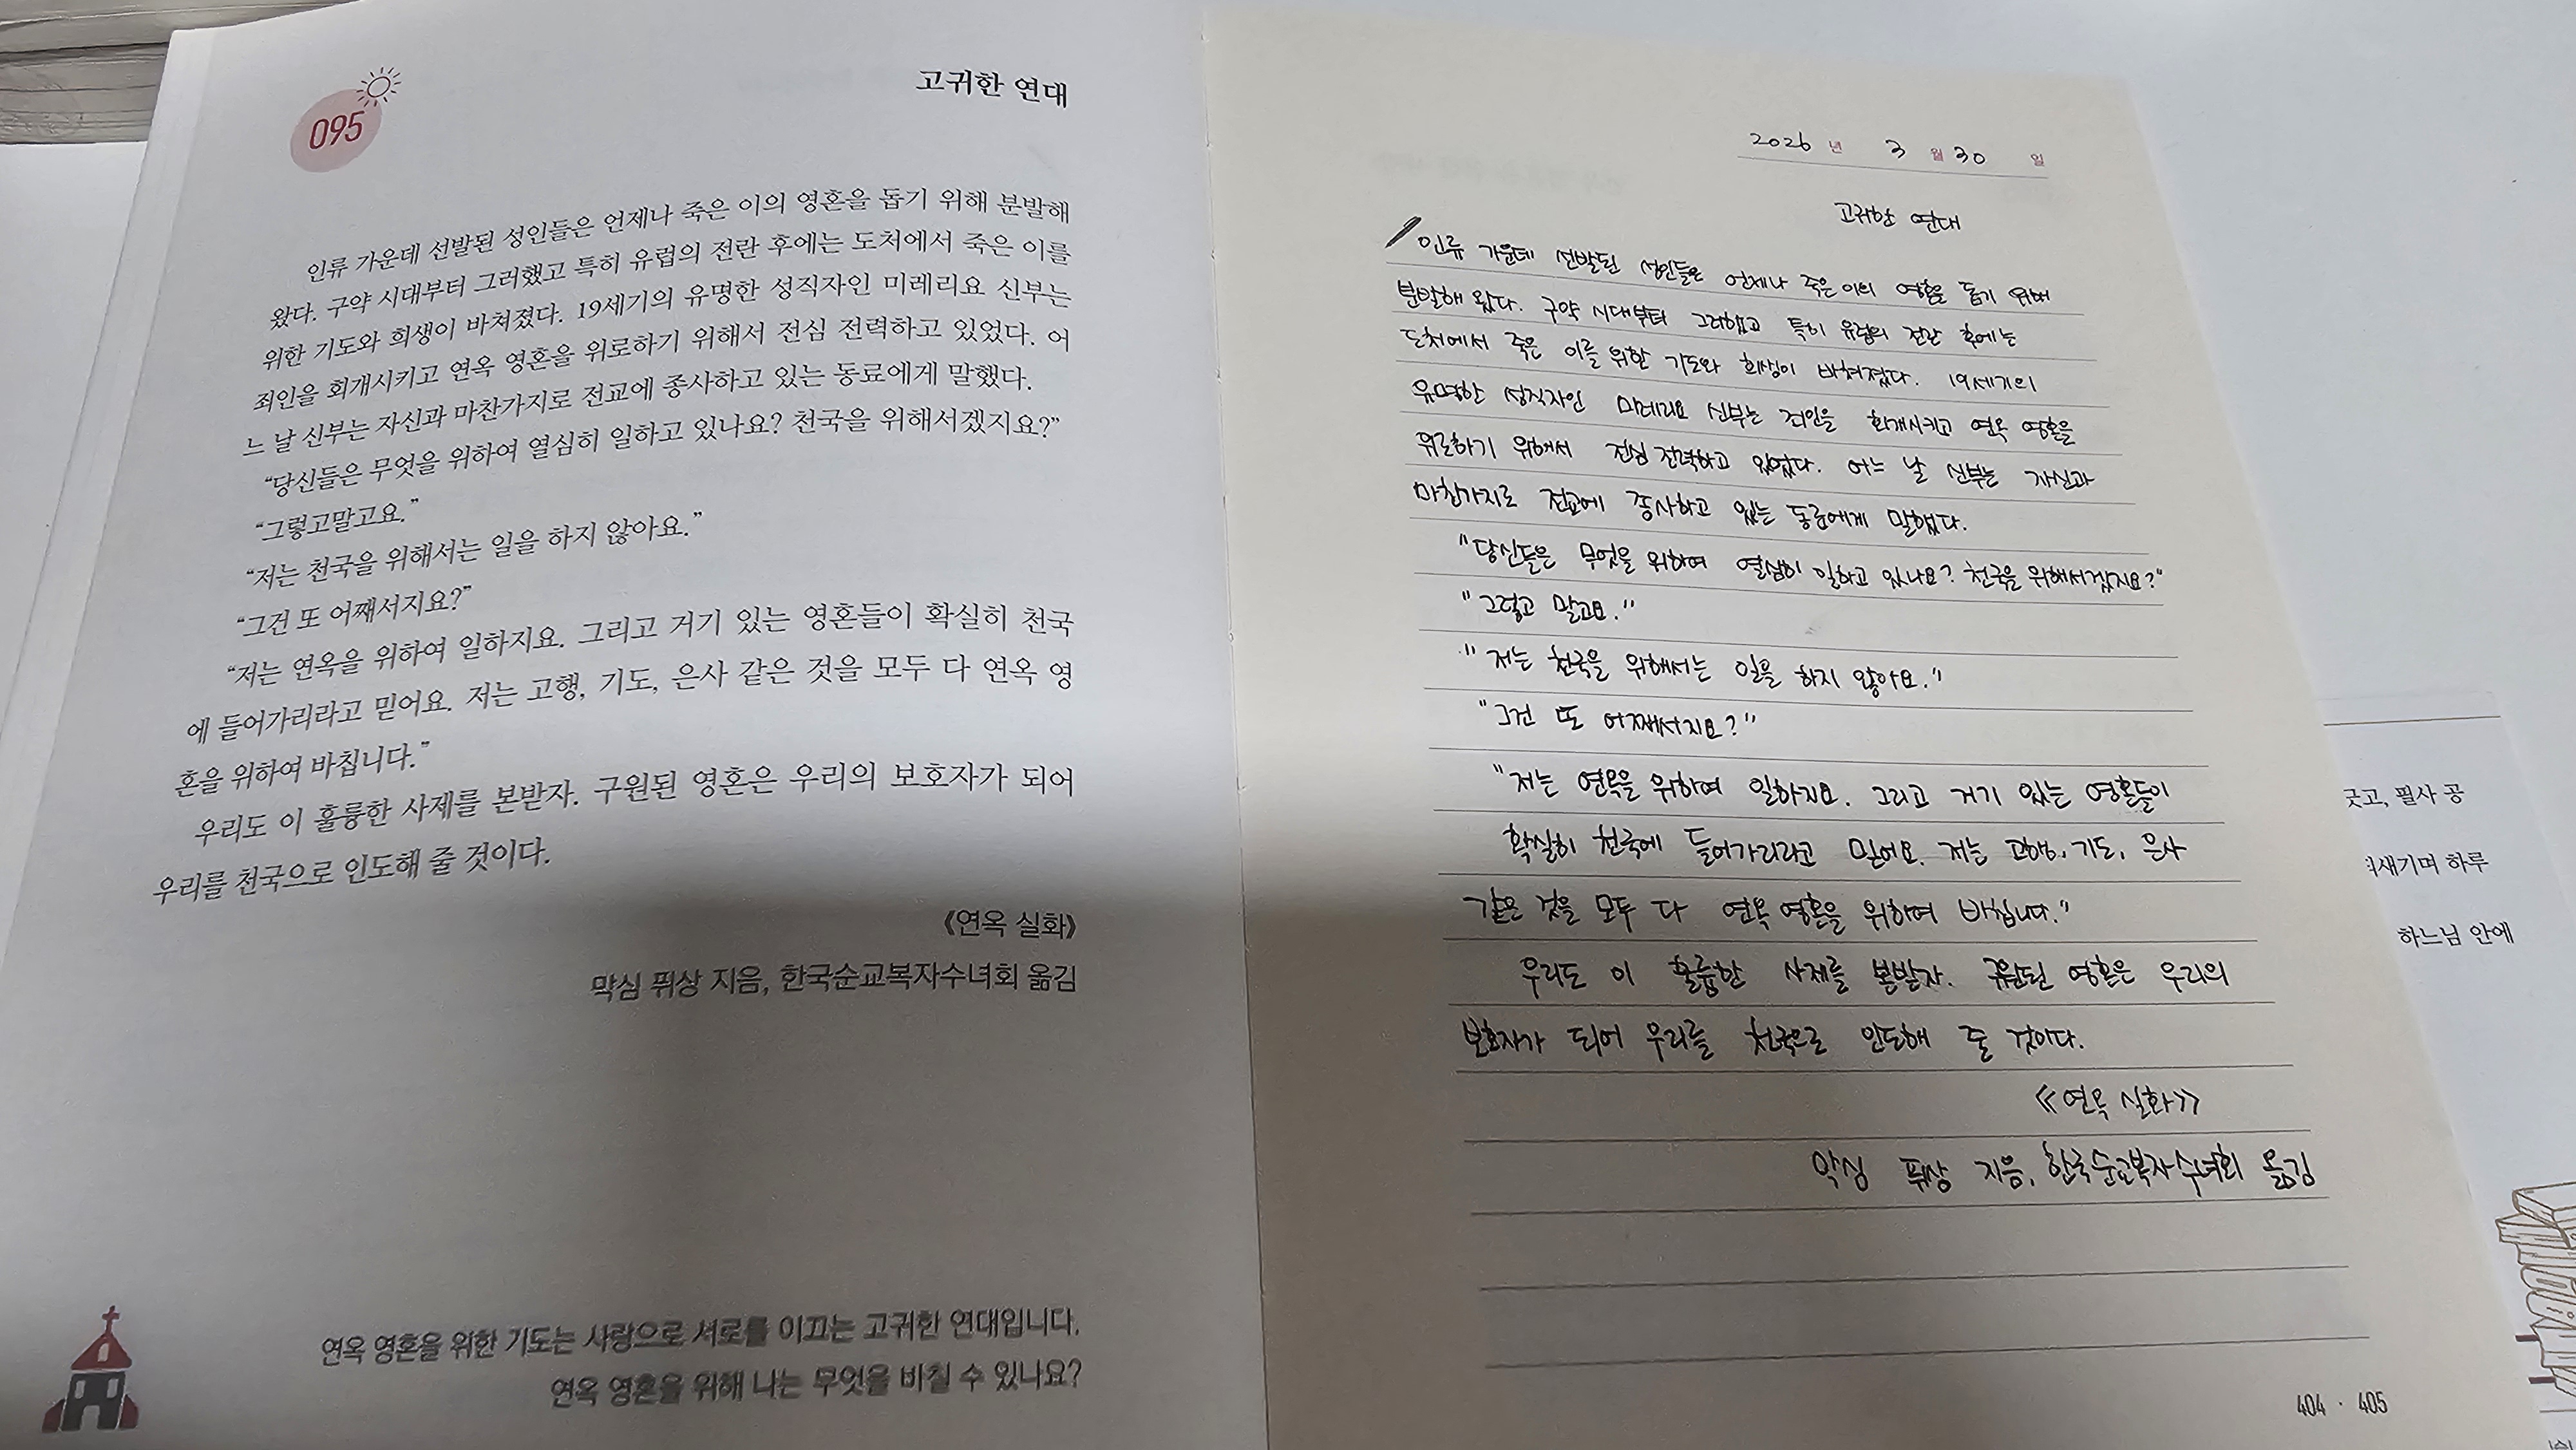 095
고귀한 연대
인류 가운데 선발된 성인들은 언제나 죽은 이의 영혼을 돕기 위해 분발해
왔다. 구약 시대부터 그러했고 특히 유럽의 전란 후에는 도처에서 죽은 이를
위한 기도와 희생이 바쳐졌다. 19세기의 유명한 성직자인 미레리요 신부는
죄인을 회개시키고 연옥 영혼을 위로하기 위해서 전심 전력하고 있었다. 어
느 날 신부는 자신과 마찬가지로 전교에 종사하고 있는 동료에게 말했다.
“당신들은 무엇을 위하여 열심히 일하고 있나요? 천국을 위해서겠지요?”
“그렇고말고요.”
“저는 천국을 위해서는 일을 하지 않아요.”
“그건 또 어째서지요?”
“저는 연옥을 위하여 일하지요. 그리고 거기 있는 영혼들이 확실히 천국
에 들어가리라고 믿어요. 저는 고행, 기도, 은사 같은 것을 모두 다 연옥 영
혼을 위하여 바칩니다.”
우리도 이 훌륭한 사제를 본받자. 구원된 영혼은 우리의 보호자가 되어
우리를 천국으로 인도해 줄 것이다.
《연옥 실화》
막심 퓌상 지음, 한국순교복자수녀회 옮김
연옥 영혼을 위한 기도는 사랑으로 서로를 이끄는 고귀한 연대입니다.
연옥 영혼을 위해 나는 무엇을 바칠 수 있나요?
2026 년 3 월 30 일
고귀한 연대
인류 가운데 선발된 성인들은 언제나 죽은 이의 영혼을 돕기 위해
분발해 왔다. 구약 시대부터 그러했고 특히 유럽의 전란 후에는
도처에서 죽은 이를 위한 기도와 희생이 바쳐졌다. 19세기의
유명한 성직자인 미레리요 신부는 죄인을 회개시키고 연옥 영혼을
위로하기 위해서 전심 전력하고 있었다. 어느 날 신부는 자신과
마찬가지로 전교에 종사하고 있는 동료에게 말했다.
"당신들은 무엇을 위하여 열심히 일하고 있나요? 천국을 위해서겠지요?"
"그렇고 말고요."
"저는 천국을 위해서는 일을 하지 않아요."
"그건 또 어째서지요?"
"저는 연옥을 위하여 일하지요. 그리고 거기 있는 영혼들이
확실히 천국에 들어가리라고 믿어요. 저는 고행, 기도, 은사
같은 것을 모두 다 연옥 영혼을 위하여 바칩니다."
우리도 이 훌륭한 사제를 본받자. 구원된 영혼은 우리의
보호자가 되어 우리를 천국으로 인도해 줄 것이다.
《연옥 실화》
막심 퓌상 지음, 한국순교복자수녀회 옮김
404 · 405
긋고, 필사 공
새기며 하루
하느님 안에